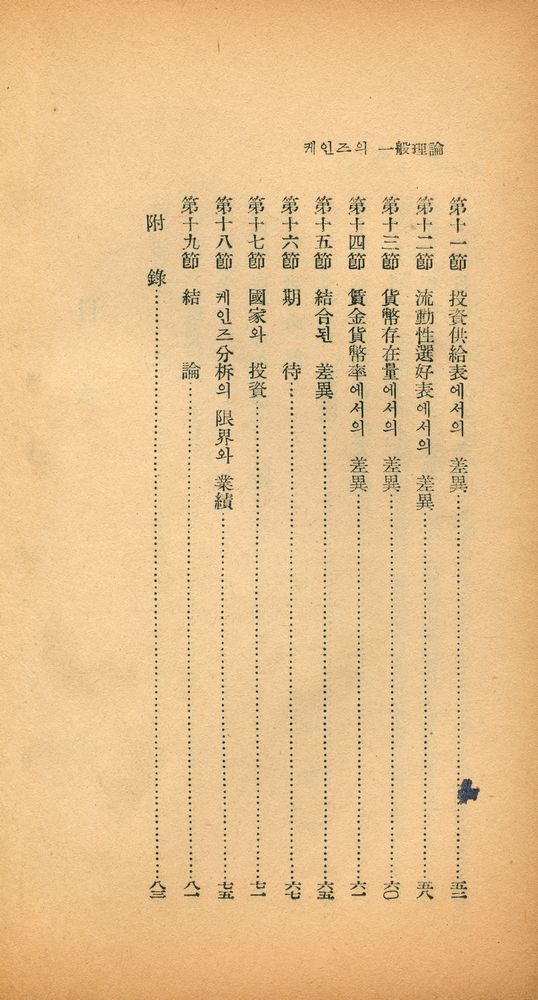 케인즈의 一般理論
第十一節 投資供給表에서의 差異 五二
第十二節 流動性選好表에서의 差異 五八
第十三節 貨幣存在量에서의 差異 六〇
第十四節 賃金貨幣率에서의 差異 六一
第十五節 結合된 差異 六五
第十六節 期 待 六七
第十七節 國家와 投資 七一
第十八節 케인즈分析의 限界와 業績 七五
第十九節 結 論 八一
附 錄 八三